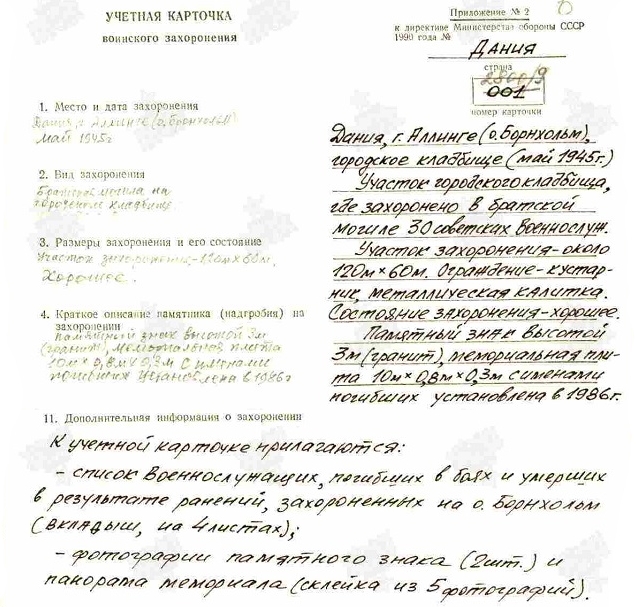 УЧЕТНАЯ КАРТОЧКА
воинского захоронения
Приложение № 2
к директиве Министерства обороны СССР
1990 года №
Дания
страна
2800/9
001
номер карточки
1. Место и дата захоронения
Дания, г. Аллинге (о. Борнхольм)
май 1945г
2. Вид захоронения
Братская могила на
городском кладбище
3. Размеры захоронения и его состояние
Участок захоронения-120м×60м,
Хорошее.
4. Краткое описание памятника (надгробия) на
захоронении
Памятный знак высотой 3м
(гранит), мемориальная плита
10м×0,8м×0,3м с именами
погибших установлена в 1986г
Дания, г. Аллинге (о. Борнхольм),
городское кладбище (май 1945г.)
Участок городского кладбища,
где захоронено в братской
могиле 30 советских военнослуж.
Участок захоронения-около
120м×60м. Ограждение-кустар-
ник, металлическая калитка.
Состояние захоронения-хорошее.
Памятный знак высотой
3м (гранит), мемориальная пли-
та 10м×0,8м×0,3м с именами
погибших установлена в 1986г.
11. Дополнительная информация о захоронении
К учетной карточке прилагаются:
- список военнослужащих, погибших в боях и умерших
в результате ранений, захороненных на о. Борнхольм
(вкладыш, на 4 листах);
- фотографии памятного знака (2шт.) и
панорама мемориала (склейка из 5 фотографий).